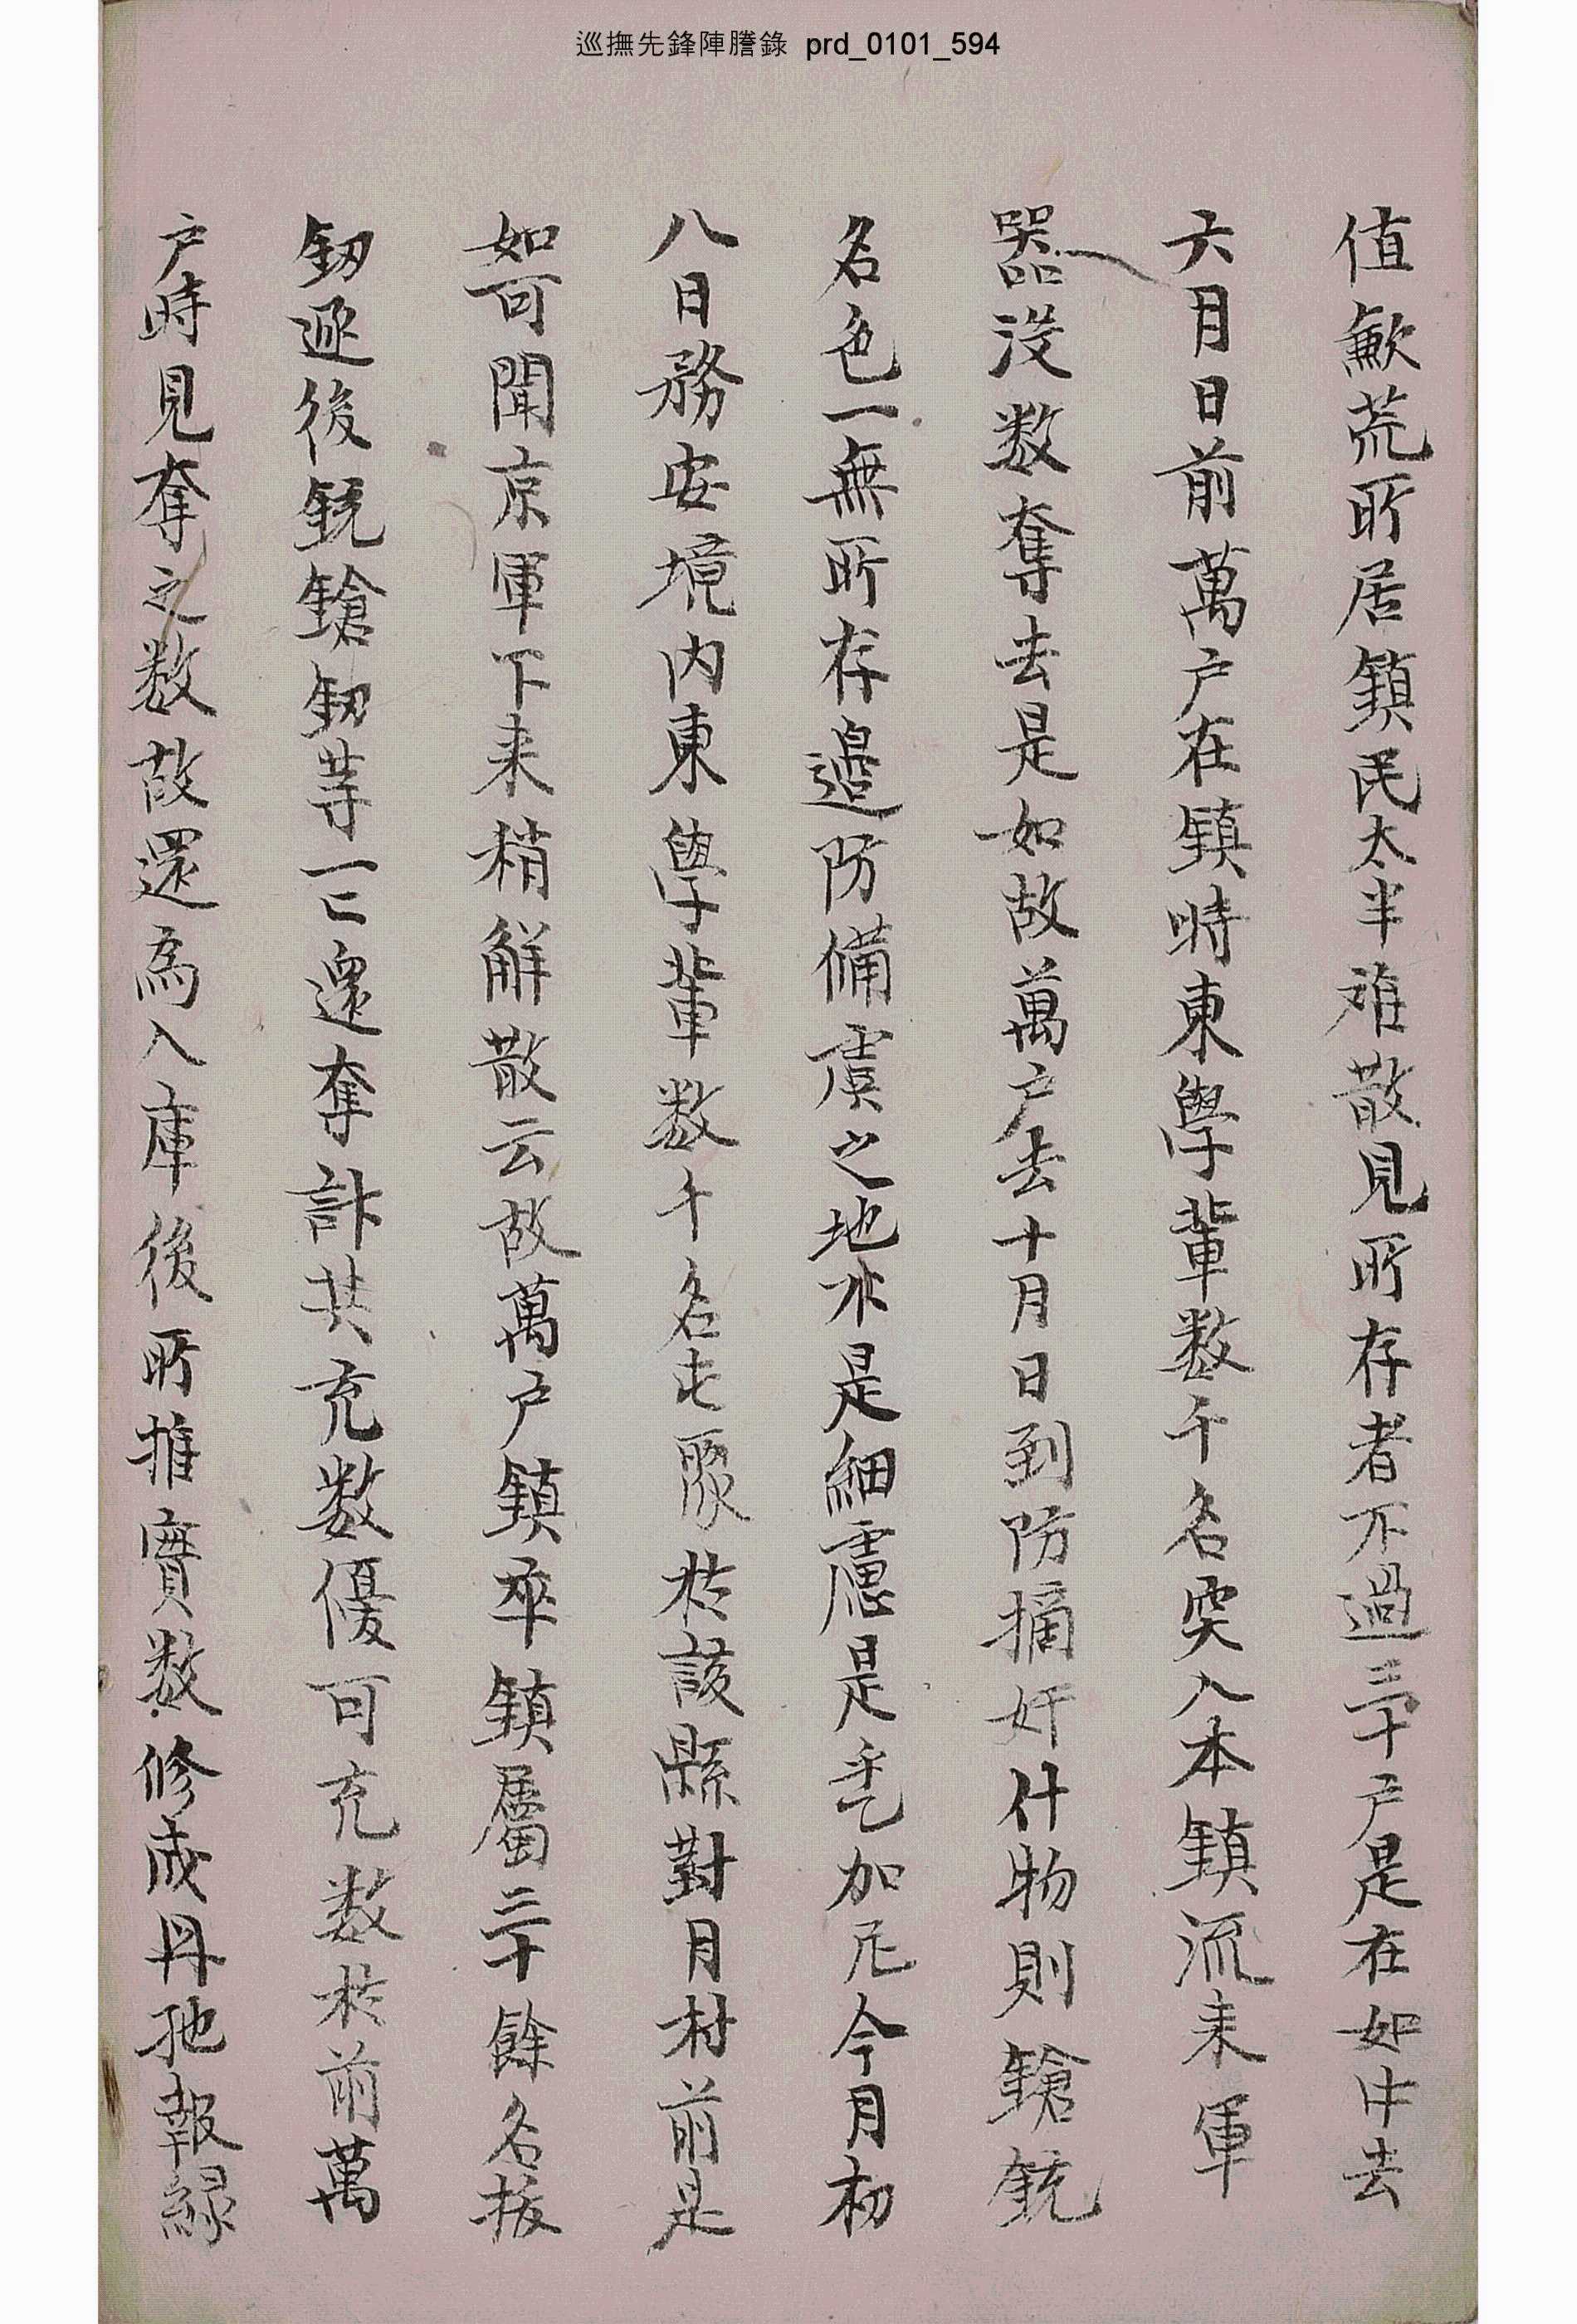 巡撫先鋒陣謄錄 prd_0101_594
值歉荒所居鎭民太半难散見所存者不過三十户是在如中去
六月日前萬户在鎭時東學輩数千名突入本鎭流来軍
器没数奪去是如故萬户去十月日到防摘奸什物則鎗銃
名色一無所存邊防備虞之地不是細慮是乎加尼今月初
八日務安境内東學輩数千名屯聚於該縣對月村前是
如可聞京軍下来稍解散云故萬户鎭卒鎭屬三十餘名拔
釰逐後銃鎗釰等一一還奪計共充数優可充数於前萬
户時見奪之数故還爲入庫後所推實数修成冊弛報緣